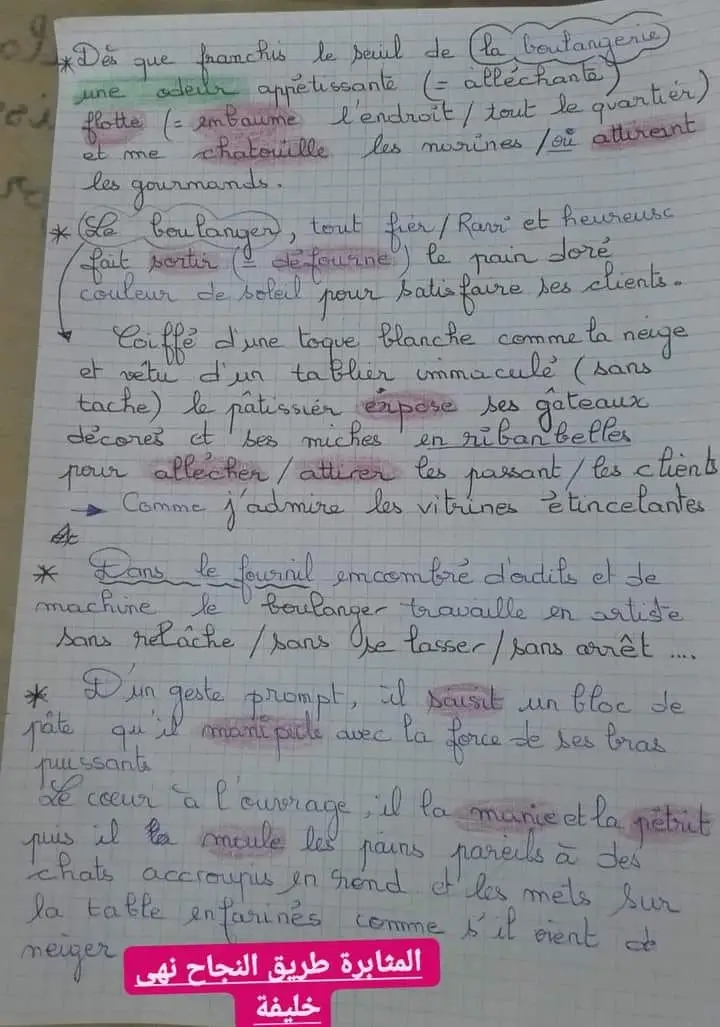 * Dès que franchis le seuil de (la boulangerie)
une odeur appétissante (= alléchante)
flotte (= embaume l'endroit / tout le quartier)
et me chatouille les narines / où attirent
les gourmands.
* (Le boulanger), tout fier / Ravi et heureuse
fait sortir (= défourne) le pain doré
couleur de soleil pour satisfaire ses clients.
Coiffé d'une toque blanche comme la neige
et vêtu d'un tablier immaculé (sans
tache) le pâtissier expose ses gâteaux
décorés et ses miches en ribanbelles
pour allécher / attirer les passant / les clients
→ Comme j'admire les vitrines étincelantes
* Dans le fournil encombré d'outils et de
machine le boulanger travaille en artiste
sans relâche / sans se lasser / sans arrêt ....
* D'un geste prompt, il saisit un bloc de
pâte qu'il manipule avec la force de ses bras
puissants
Le cœur à l'ouvrage, il la manie et la pétrit
puis il moule les pains pareils à des
chats accroupis en rond et les mets sur
la table enfarinés comme s'il vient de
neiger
المثابرة طريق النجاح نهى
خليفة